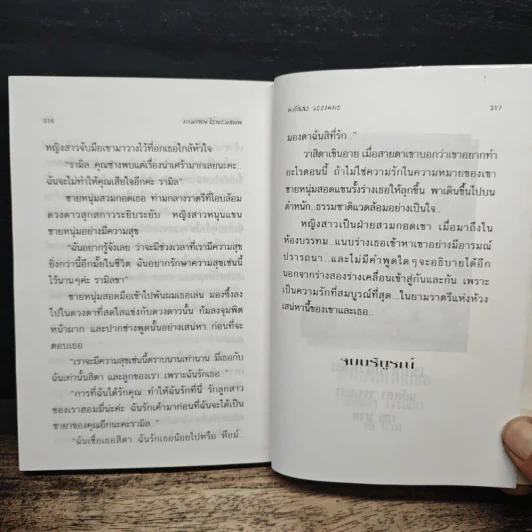 316
หญิงสาวจับมือเขามาวางไว้ที่อกเธอใกล้หัวใจ
“รามิล..คุณช่างพบแต่เรื่องน่าเศร้ามากเลยนะคะ..
ฉันจะไม่ทำให้คุณเสียใจอีกค่ะ รามิล”
ชายหนุ่มสวมกอดเธอ ท่ามกลางราตรีที่โอบล้อม
ดวงดาวสุกสกาวระยิบระยับ หญิงสาวหนุนแขน
ชายหนุ่มอย่างมีความสุข
“ฉันอยากรู้จังเลย ว่าจะมีช่วงเวลาที่เรามีความสุข
ยิ่งกว่านี้อีกมั้ยในชีวิต ฉันอยากรักษาความสุขเช่นนี้
ไว้นานๆค่ะ รามิลขา”
ชายหนุ่มสอดมือเข้าไปพันผมเธอเล่น มองซึ้งลง
ไปในดวงตาที่สดใสแข่งกับดวงดาวนั้น ก้มลงจุมพิต
หน้าผาก และปากช่างพูดนั้นอย่างเสน่หา ก่อนที่จะ
ตอบเธอ
“เราจะมีความสุขเช่นนี้ตราบนานเท่านาน มีเธอกับ
ฉันเท่านั้นสิตา และลูกของเรา เพราะฉันรักเธอ..”
“การที่ฉันได้รักคุณ ทำให้ฉันรักที่นี่ รักลูกสาว
ของเราฮอมมี่น่ะค่ะ ฉันรักเค้ามาก่อนที่ฉันจะได้เป็น
ชายาของคุณอีกนะคะรามิล..”
“ฉันเชื่อเธอสิตา ฉันรักเธอน้อยไปหรือ หือม์..
317
มองตาฉันสิที่รัก..”
วาสิตาเขินอาย เมื่อสายตาเขาบอกว่าเขาอยากทำ
อะไรตอนนี้ ถ้าไม่ใช่ความรักในความหมายของเขา
ชายหนุ่มสอดแขนรั้งร่างเธอให้ลุกขึ้น พาเดินขึ้นไปบน
ตำหนัก..ธรรมชาติแวดล้อมอย่างเป็นใจ..
หญิงสาวเป็นฝ่ายสวมกอดเขา เมื่อมาถึงใน
ห้องบรรทม...แนบร่างเธอเข้าหาเขาอย่างมีอารมณ์
ปรารถนา...และไม่มีคำพูดใดๆจะอธิบายได้อีก
นอกจากร่างสองร่างเคลื่อนเข้าสู่กันและกัน เพราะ
เป็นความรักที่สมบูรณ์ที่สุด...ในยามราตรีแห่งห้วง
เสน่หานี้ของเขาและเธอ..
จบบริบูรณ์